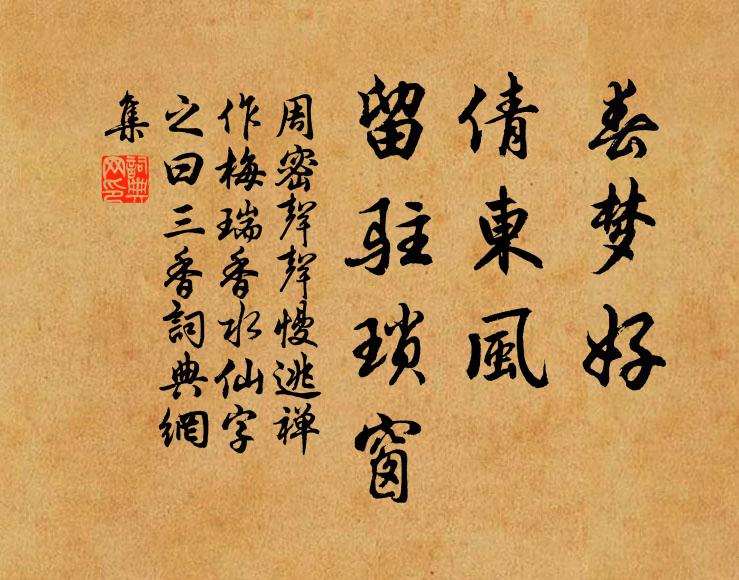 春梦好
倩東風
留駐瑣窗
周密聲聲慢逃禅
作梅瑞香水仙字
之曰三香詞典網
集
詞典網印